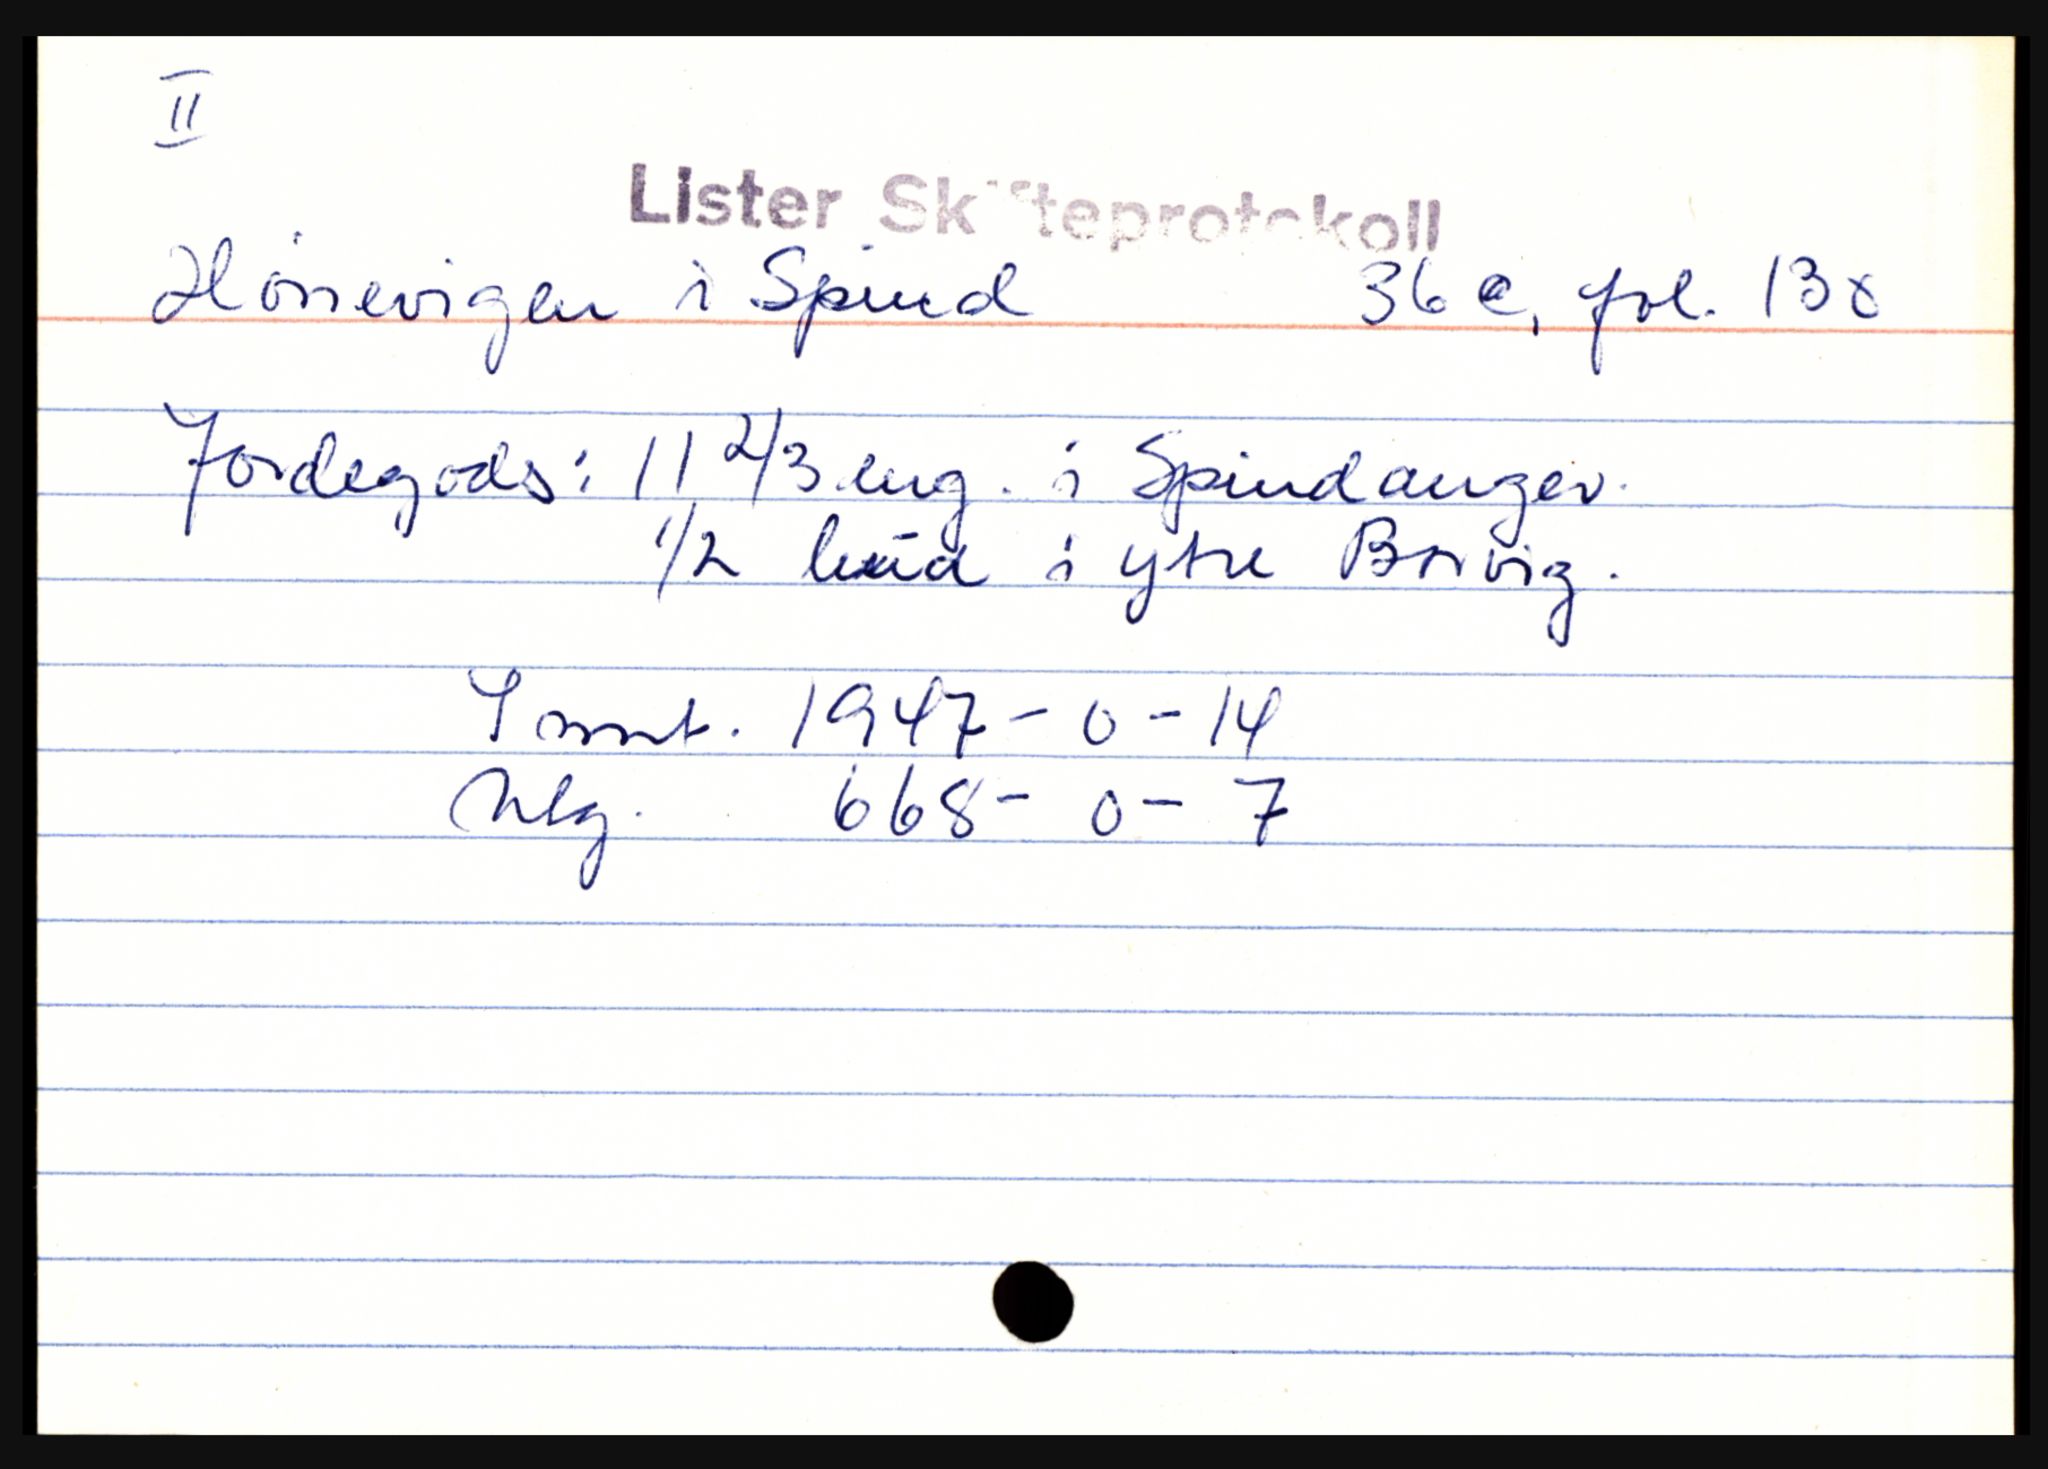 II
Lister Skifteprotokoll
Hörrevigen i Spind 36 c, fol. 138
Jordegods: 11 2/3 eng. i Spindanger.
1/2 hud i ytre
S mmt. 1947 - 0 - 14
Utlg. 668 - 0 - 7